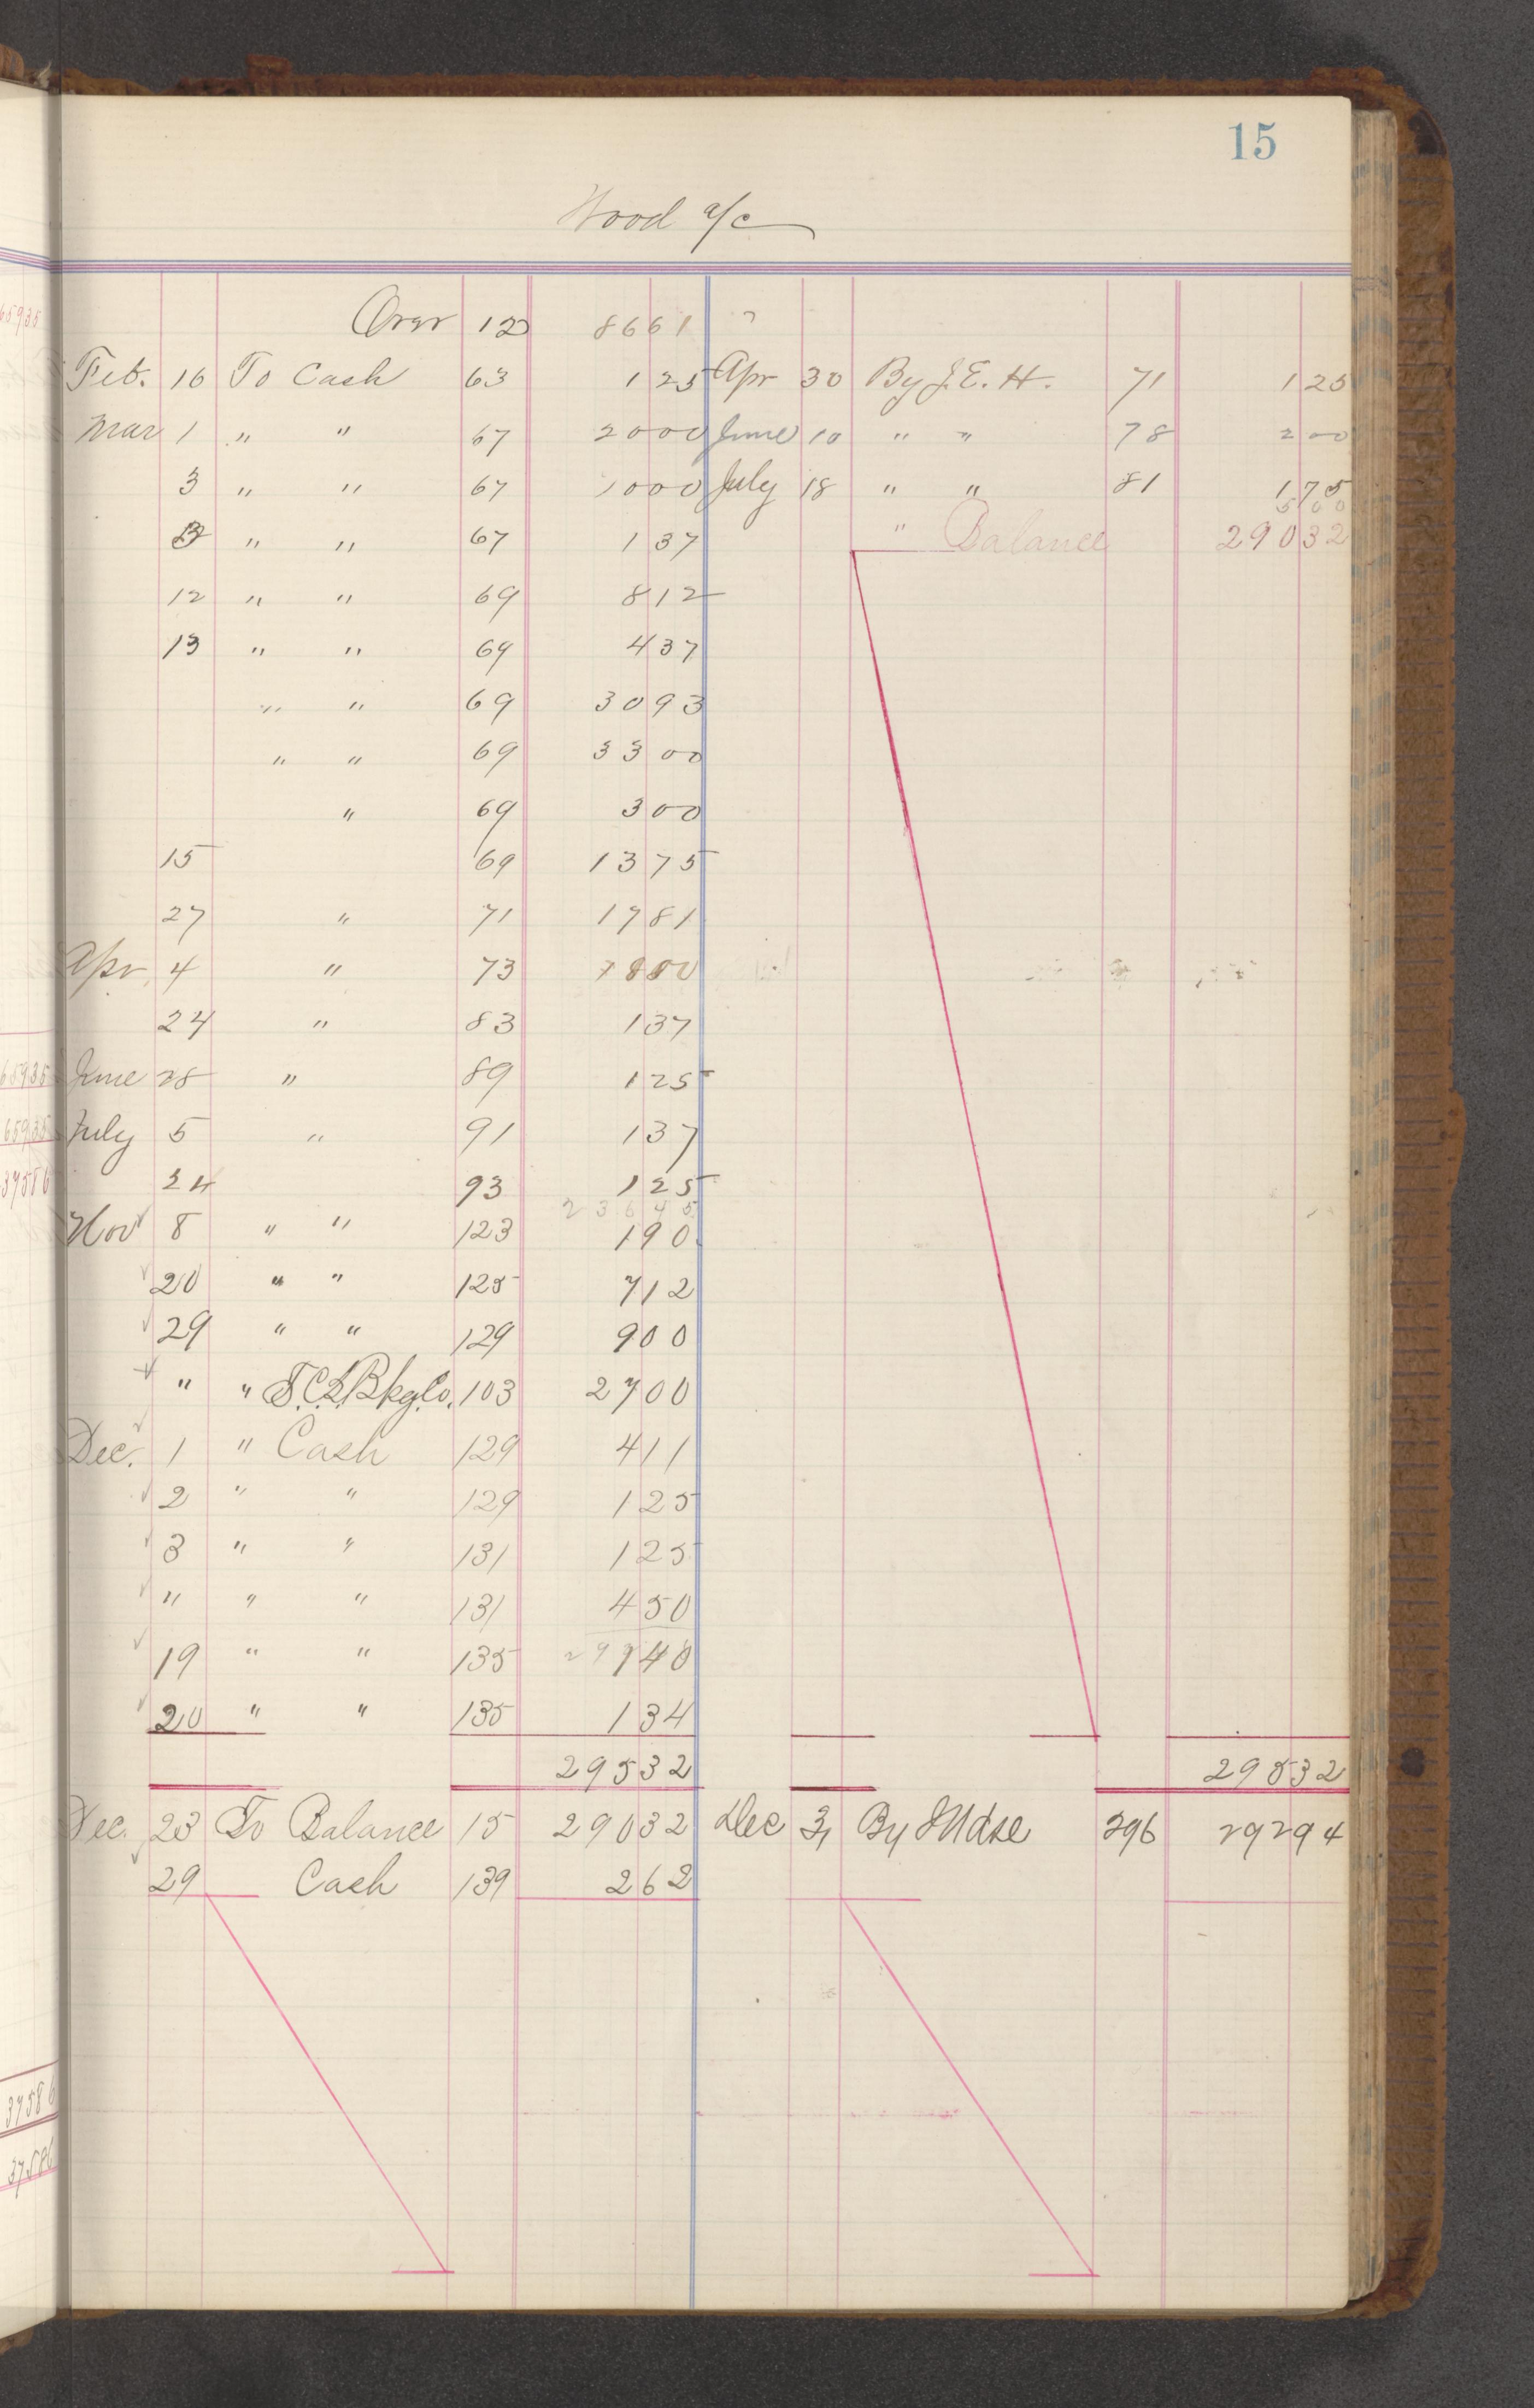 15
Wood a/c
Over 12 86 61
Feb. 16 To Cash 63 1 25 Apr 30 By J. E. H. 71 1 25
Mar 1 " " 67 20 00 June 10 " " 78 2 00
3 " " 67 10 00 July 18 " " 81 1 75
5 00
" " 67 1 37 " Balance 290 32
12 " " 69 8 12
13 " " 69 4 37
" " 69 30 93
" " 69 33 00
" 69 3 00
15 69 13 75
27 " 71 17 81
Apr 4 " 73
24 " 83 1 37
June 28 " 89 1 25
July 5 " 91 1 37
24 93 1 25
236 45
Nov 8 " " 123 1 90
20 " " 125 7 12
29 " " 129 9 00
" " S.C.L. Bkg. Co. 103 27 00
Dec. 1 " Cash 129 4 11
2 " " 129 1 25
3 " " 131 1 25
" " " 131 4 50
19 " " 135 1 40
20 " " 135 1 34
295 32 295 32
Dec. 23 To Balance 15 290 32 Dec 31 By Mdse 296 292 94
29 Cash 139 2 62
659 35
659 35
375 86
375 86
375 86